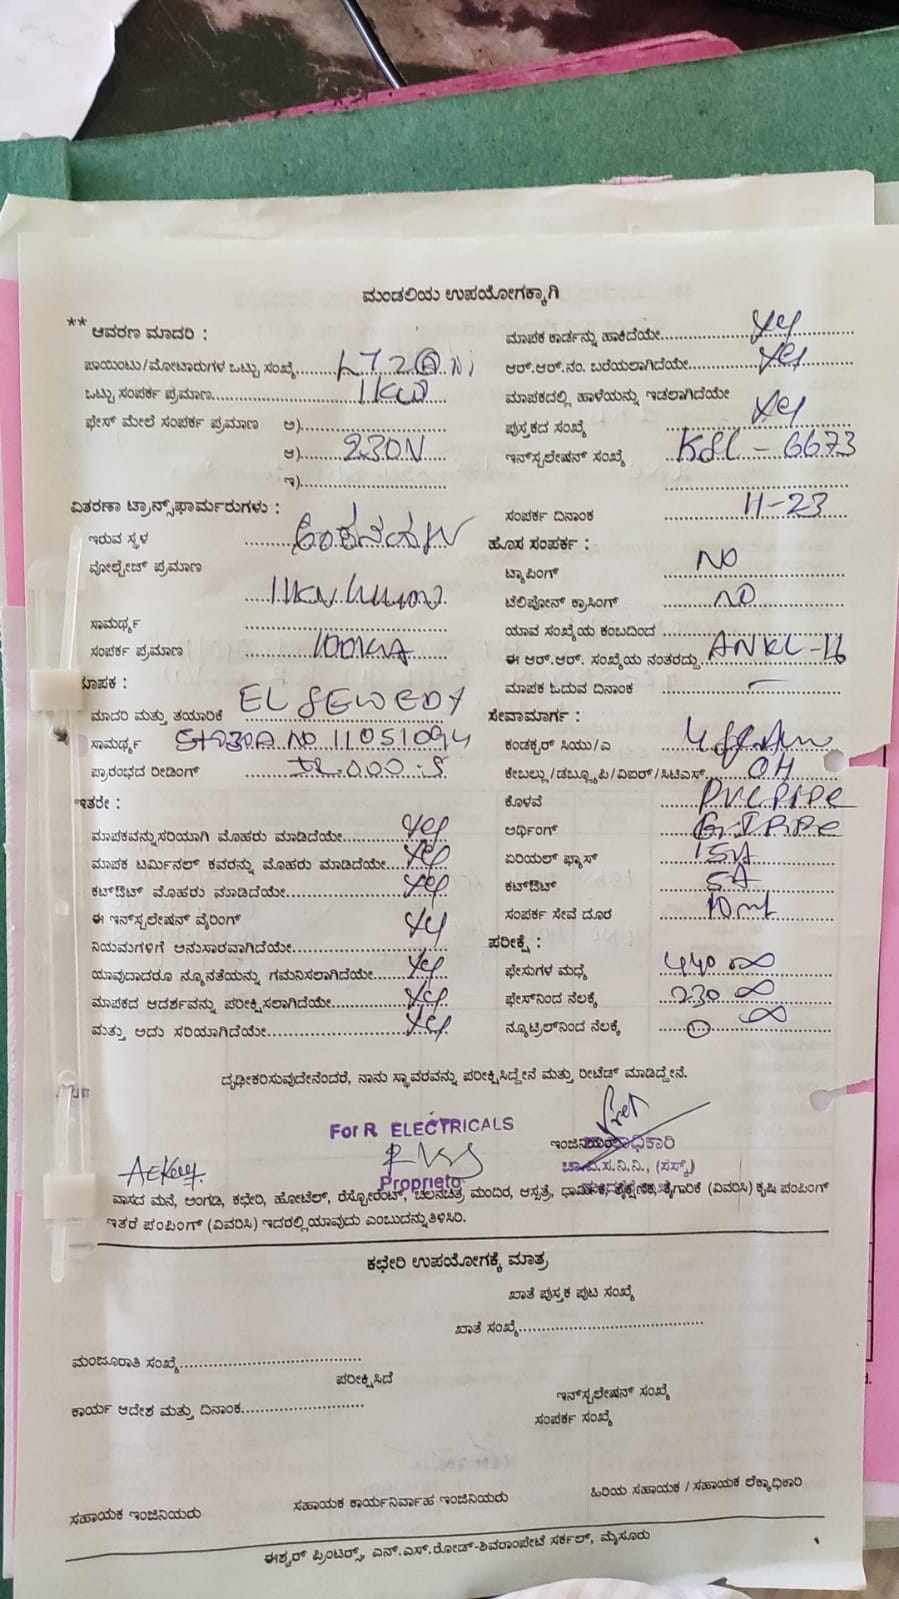 ಮಂಡಲಿಯ ಉಪಯೋಗಕ್ಕಾಗಿ
** ಆವರಣ ಮಾದರಿ :
ಪಾಯಿಂಟು/ಮೋಟಾರುಗಳ ಒಟ್ಟು ಸಂಖ್ಯೆ......
ಒಟ್ಟು ಸಂಪರ್ಕ ಪ್ರಮಾಣ...... 1KW
ಫೇಸ್ ಮೇಲೆ ಸಂಪರ್ಕ ಪ್ರಮಾಣ ಅ)......
ಆ)...... 230V
ಇ)......
ವಿತರಣಾ ಟ್ರಾನ್ಸ್‌ಫಾರ್ಮರುಗಳು :
ಇರುವ ಸ್ಥಳ ......
ವೋಲ್ಟೇಜ್ ಪ್ರಮಾಣ
......
ಸಾಮರ್ಥ್ಯ ......
ಸಂಪರ್ಕ ಪ್ರಮಾಣ ...... 100KVA
ಮಾಪಕ :
ಮಾದರಿ ಮತ್ತು ತಯಾರಿಕೆ EL SEWEDY
ಸಾಮರ್ಥ್ಯ NO 11051094
ಪ್ರಾರಂಭದ ರೀಡಿಂಗ್ ......
ಇತರೇ :
ಮಾಪಕವನ್ನು ಸರಿಯಾಗಿ ಮೊಹರು ಮಾಡಿದೆಯೇ...... Yes
ಮಾಪಕ ಟರ್ಮಿನಲ್ ಕವರನ್ನು ಮೊಹರು ಮಾಡಿದೆಯೇ...... Yes
ಕಟ್‌ಔಟ್ ಮೊಹರು ಮಾಡಿದೆಯೇ...... Yes
ಈ ಇನ್‌ಸ್ಟಲೇಷನ್ ವೈರಿಂಗ್
ನಿಯಮಗಳಿಗೆ ಅನುಸಾರವಾಗಿದೆಯೇ...... Yes
ಯಾವುದಾದರೂ ನ್ಯೂನತೆಯನ್ನು ಗಮನಿಸಲಾಗಿದೆಯೇ...... Yes
ಮಾಪಕದ ಆದರ್ಶವನ್ನು ಪರೀಕ್ಷಿಸಲಾಗಿದೆಯೇ...... Yes
ಮತ್ತು ಅದು ಸರಿಯಾಗಿದೆಯೇ...... Yes
ಮಾಪಕ ಕಾರ್ಡನ್ನು ಹಾಕಿದೆಯೇ...... Yes
ಆರ್.ಆರ್.ನಂ. ಬರೆಯಲಾಗಿದೆಯೇ...... Yes
ಮಾಪಕದಲ್ಲಿ ಹಾಳೆಯನ್ನು ಇಡಲಾಗಿದೆಯೇ Yes
ಪುಸ್ತಕದ ಸಂಖ್ಯೆ ......
ಇನ್‌ಸ್ಟಲೇಷನ್ ಸಂಖ್ಯೆ - 6673
ಸಂಪರ್ಕ ದಿನಾಂಕ ...... 11-23
ಹೊಸ ಸಂಪರ್ಕ :
ಟ್ಯಾಪಿಂಗ್ NO
ಟೆಲಿಫೋನ್ ಕ್ರಾಸಿಂಗ್ NO
ಯಾವ ಸಂಖ್ಯೆಯ ಕಂಬದಿಂದ ......
ಈ ಆರ್.ಆರ್. ಸಂಖ್ಯೆಯ ನಂತರದ್ದು
ಮಾಪಕ ಓದುವ ದಿನಾಂಕ ......
ಸೇವಾಮಾರ್ಗ :
ಕಂಡಕ್ಟರ್ ಸಿಯು/ಎ ......
ಕೇಬಲ್ಲು/ಡಬ್ಲ್ಯೂಪಿ/ವಿಐರ್/ಸಿಟಿಎಸ್ OH
ಕೊಳವೆ PVC PIPE
ಅರ್ಥಿಂಗ್ G.I PIPE
ಏರಿಯಲ್ ಫ್ಯೂಸ್ 15A
ಕಟ್‌ಔಟ್ 5A
ಸಂಪರ್ಕ ಸೇವೆ ದೂರ 10mt
ಪರೀಕ್ಷೆ :
ಫೇಸುಗಳ ಮಧ್ಯೆ 440 ∞
ಫೇಸ್‌ನಿಂದ ನೆಲಕ್ಕೆ 230 ∞
ನ್ಯೂಟ್ರಲ್‌ನಿಂದ ನೆಲಕ್ಕೆ ∞
ದೃಢೀಕರಿಸುವುದೇನೆಂದರೆ, ನಾನು ಸ್ಥಾವರವನ್ನು ಪರೀಕ್ಷಿಸಿದ್ದೇನೆ ಮತ್ತು ರೀಟೆಡ್ ಮಾಡಿದ್ದೇನೆ.
For R ELECTRICALS
Proprieto
ಚಾ.ವಿ.ಸ.ನಿ.ನಿ.,
ವಾಸದ ಮನೆ, ಅಂಗಡಿ, ಕಛೇರಿ, ಹೋಟೆಲ್, ರೆಸ್ಟೋರೆಂಟ್, ಚಲನಚಿತ್ರ ಮಂದಿರ, ಆಸ್ಪತ್ರೆ, ಧಾರ್ಮಿಕ, ಶೈಕ್ಷಣಿಕ, ಕೈಗಾರಿಕೆ (ವಿವರಿಸಿ) ಕೃಷಿ ಪಂಪಿಂಗ್
ಇತರೆ ಪಂಪಿಂಗ್ (ವಿವರಿಸಿ) ಇದರಲ್ಲಿ ಯಾವುದು ಎಂಬುದನ್ನು ತಿಳಿಸಿರಿ.
ಕಛೇರಿ ಉಪಯೋಗಕ್ಕೆ ಮಾತ್ರ
ಖಾತೆ ಪುಸ್ತಕ ಪುಟ ಸಂಖ್ಯೆ
ಖಾತೆ ಸಂಖ್ಯೆ......
ಮಂಜೂರಾತಿ ಸಂಖ್ಯೆ......
ಪರೀಕ್ಷಿಸಿದೆ
ಇನ್‌ಸ್ಟಲೇಷನ್ ಸಂಖ್ಯೆ
ಕಾರ್ಯ ಆದೇಶ ಮತ್ತು ದಿನಾಂಕ......
ಸಂಪರ್ಕ ಸಂಖ್ಯೆ
ಸಹಾಯಕ ಇಂಜಿನಿಯರು ಸಹಾಯಕ ಕಾರ್ಯನಿರ್ವಾಹ ಇಂಜಿನಿಯರು ಹಿರಿಯ ಸಹಾಯಕ / ಸಹಾಯಕ ಲೆಕ್ಕಾಧಿಕಾರಿ
ಈಶ್ವರ್ ಪ್ರಿಂಟರ್ಸ್, ಎನ್.ಎಸ್.ರೋಡ್-ಶಿವರಾಂಪೇಟೆ ಸರ್ಕಲ್, ಮೈಸೂರು